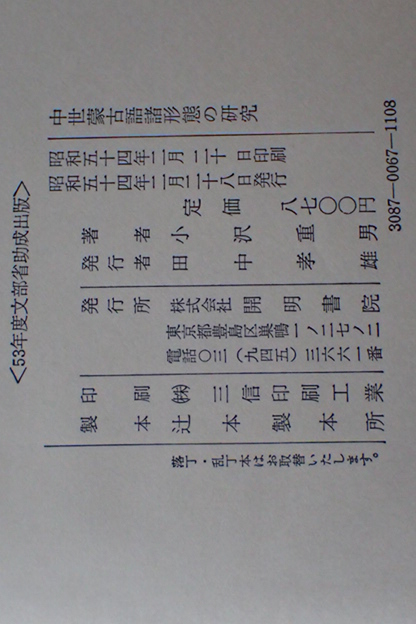 <53年度文部省助成出版>
中世蒙古語諸形態の研究
昭和五十四年二月二十日印刷
昭和五十四年二月二十八日発行
定価 八七〇〇円
著者 小沢重男
発行者 田中孝雄
発行所 株式会社開明書院
東京都豊島区巣鴨一ノ二七ノ二
電話〇三(九四五)三六六一番
印刷 ㈱三信印刷工業
製本 辻本製本所
落丁・乱丁本はお取替いたします。
3087-0067-1108